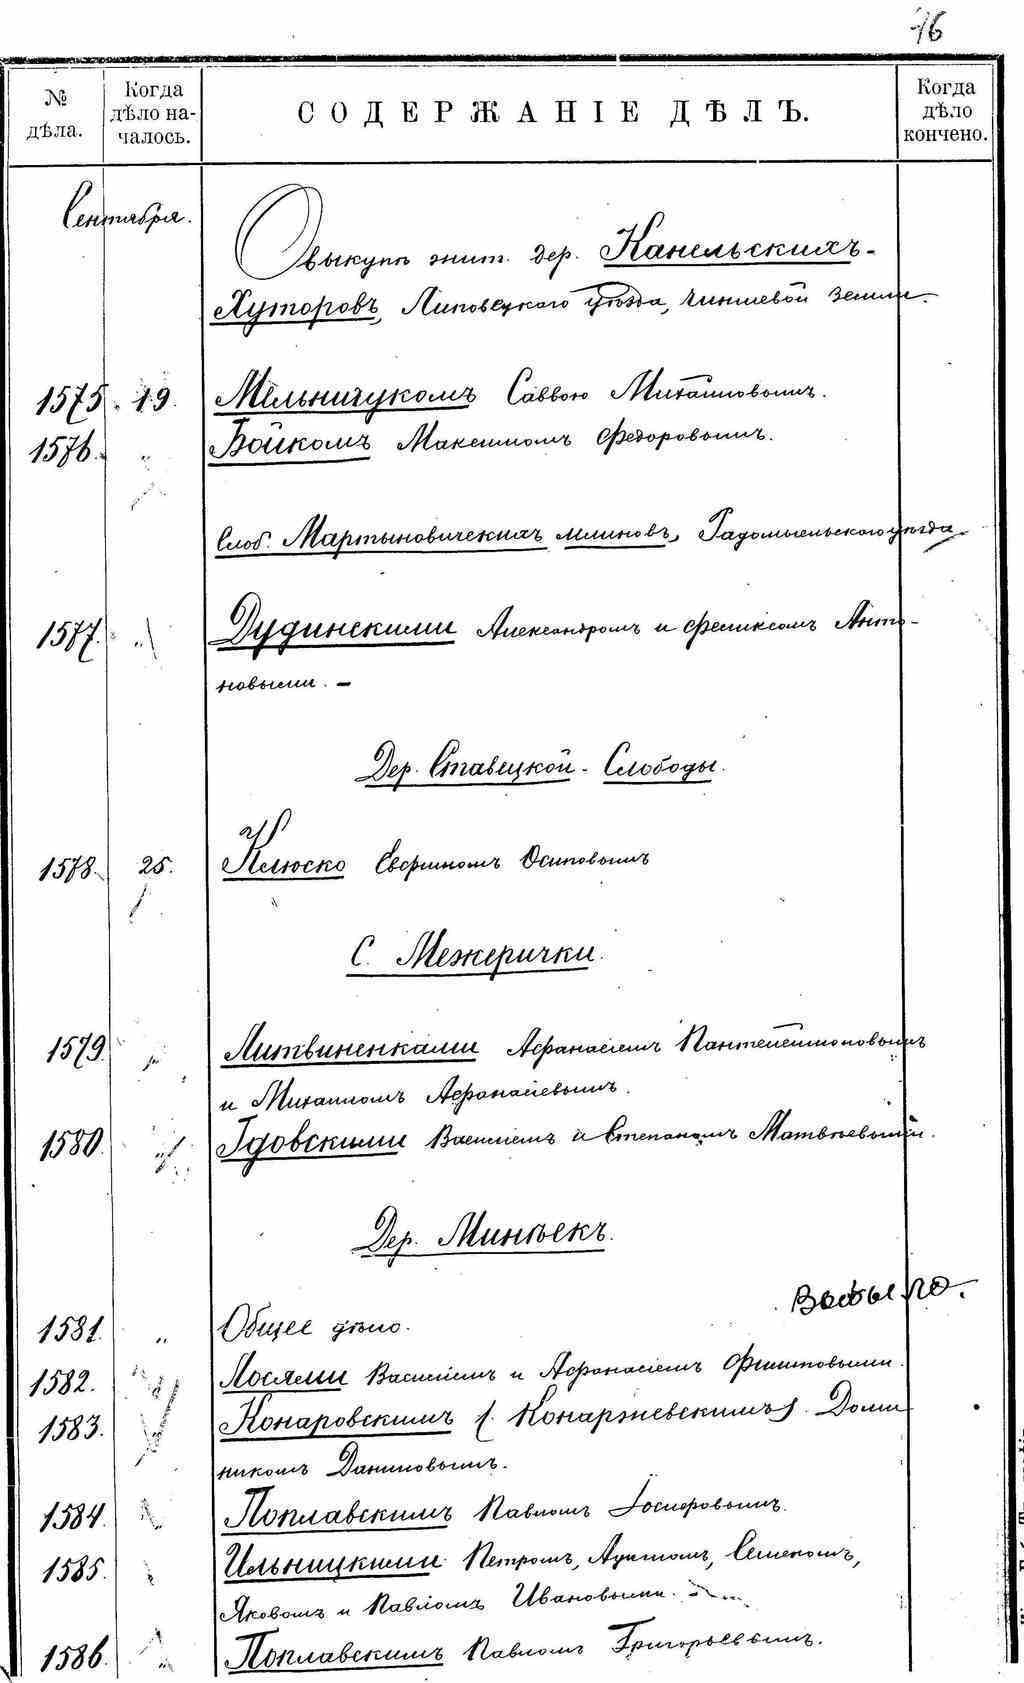 76
№ дѣла.
Когда дѣло на-чалось.
СОДЕРЖАНІЕ ДѢЛЪ.
Когда дѣло кончено.
Сентября.
О выкупѣ жит. дер. Канельскихъ-
Хуторовъ, Липовецкаго уѣзда, чиншевой земли.
1575. 19. Мельничукомъ Саввою Михайловымъ.
1576. " Бойкомъ Максимомъ Федоровымъ.
Слоб. Мартыновическихъ млиновъ, Радомысльскаго уѣзда
1577. " Дудинскими Александромъ и Феликсомъ Анто-
новыми. –
Дер. Ставецкой - Слободы.
1578. 25. Клюско Осиповымъ
С. Межерички.
1579. " Литвиненками Афанасіемъ Пантелеймоновымъ
и Михаиломъ Афанасіевымъ.
1580. " Гдовскими Василіемъ и Степаномъ Матвѣевыми.
Дер. Минѣекъ.
1581. " Общее дѣло. Выбыло.
1582. " Лосями Василіемъ и Афанасіемъ Филиповыми.
1583. " Конаровскимъ (Конаржевскимъ). Доми
никомъ Даниловымъ.
1584. " Поплавскимъ Павломъ Іосифовымъ.
1585. " Ильницкими Петромъ, Адамомъ, Семеномъ,
Яковомъ и Павломъ Ивановыми. –
1586. " Поплавскимъ Павломъ Григорьевымъ.